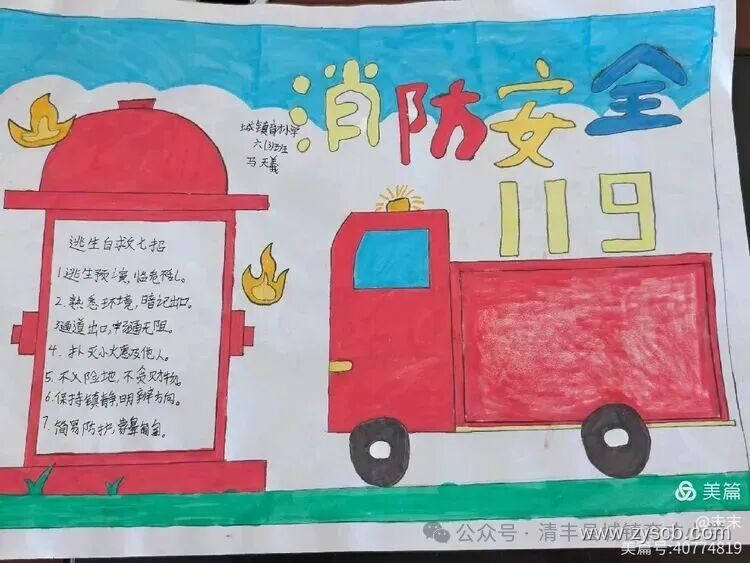 消防安全
119
城镇育才小学
六(3)班
马天羲
逃生自救七招
1.逃生预演,临危不乱。
2.熟悉环境,暗记出口。
3.通道出口,畅通无阻。
4.扑灭小火惠及他人。
5.不入险地,不贪财物。
6.保持镇静,明辨方向。
7.简易防护,蒙鼻匍匐。
美篇
公众号·清丰县城镇
www.zyscb.com
美篇号:40774819